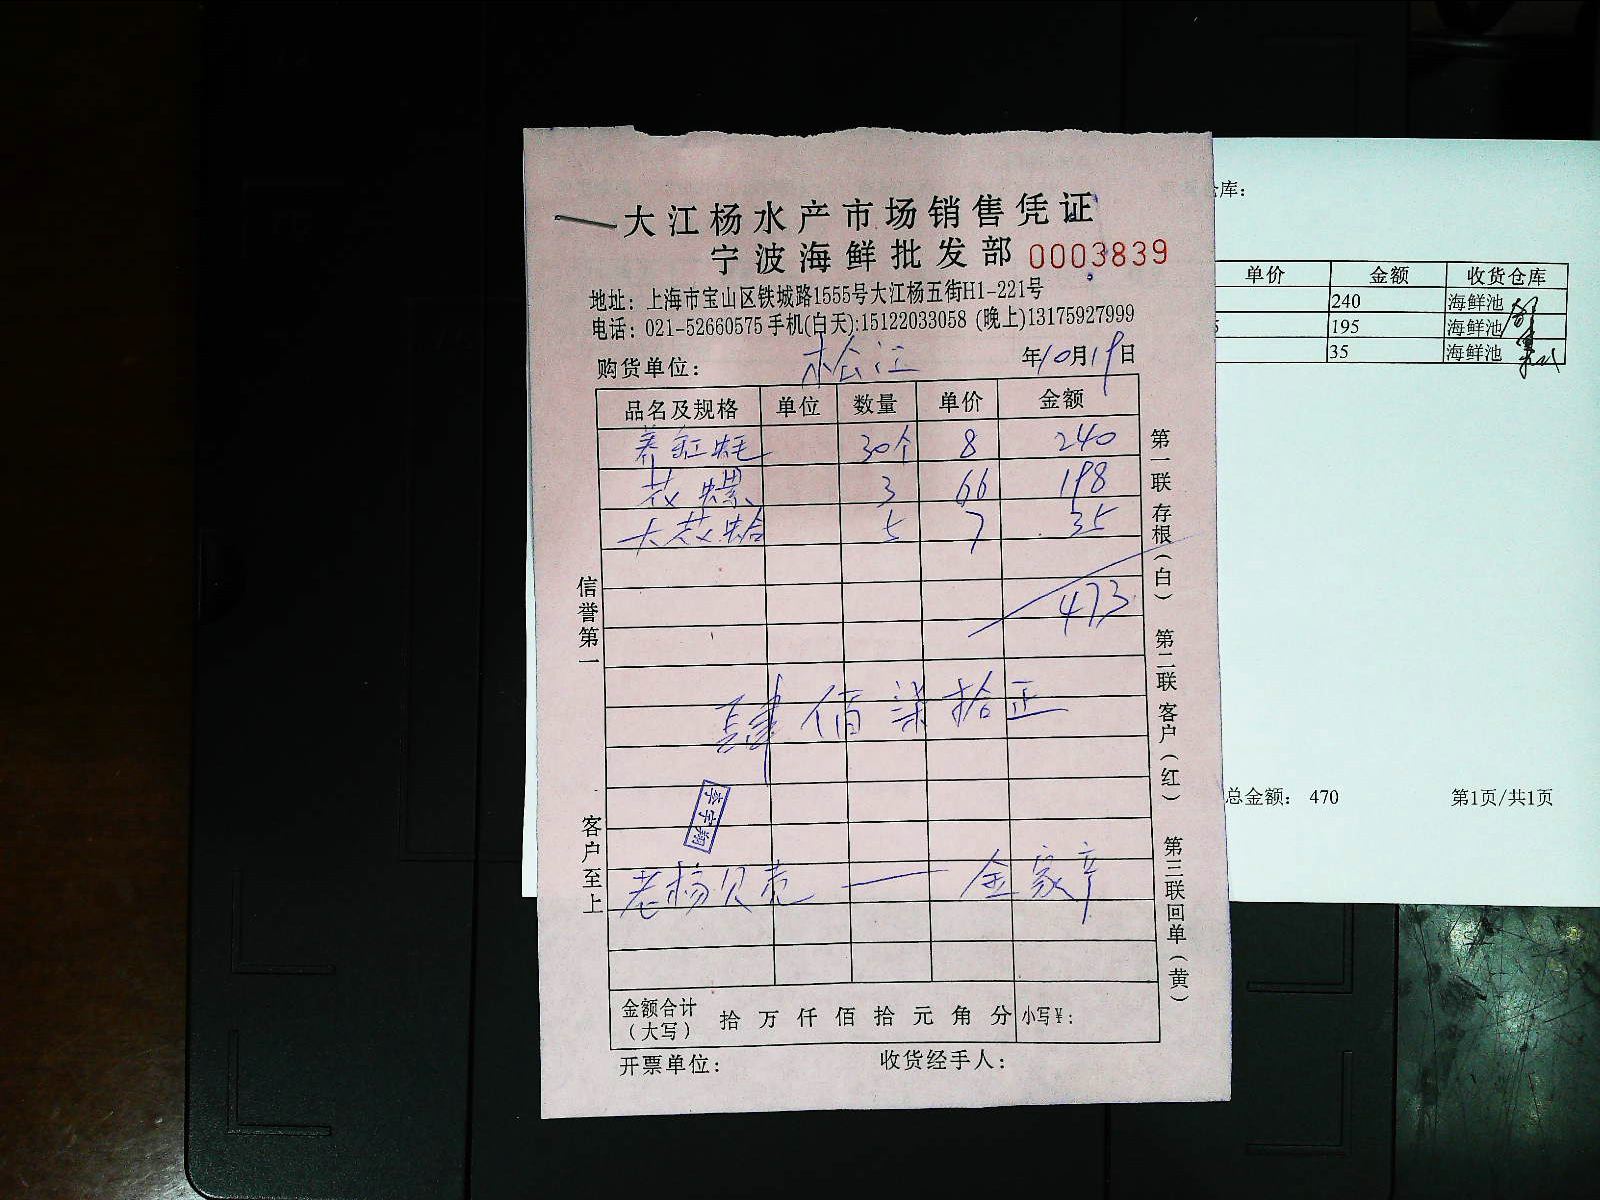 大江杨水产市场销售凭证
宁波海鲜批发部 0003839
地址：上海市宝山区铁城路1555号大江杨五街H1-221号
电话：021-52660575 手机(白天):15122033058 (晚上)13175927999
购货单位：松江 年10月19日
品名及规格 单位 数量 单价 金额
养缸蚝 30个 8 240
花螺 3 66 198
大花蛤 5 7 35
473
肆佰柒拾正
李宇翔
老杨贝壳 — 金家章
金额合计（大写） 拾 万 仟 佰 拾 元 角 分 小写¥：
开票单位： 收货经手人：
信誉第一
客户至上
第一联 存根（白） 第二联 客户（红） 第三联 回单（黄）
仓库：
单价 金额 收货仓库
240 海鲜池
5 195 海鲜池
35 海鲜池
总金额： 470 第1页/共1页